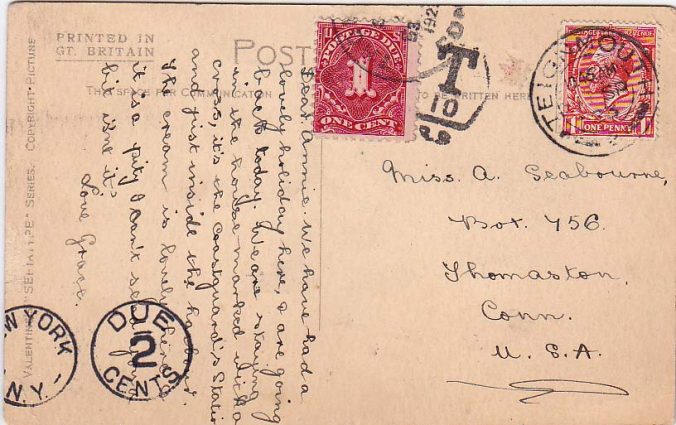 PRINTED IN
GT. BRITAIN
POST
THIS SPACE FOR COMMUNICATION
TO BE WRITTEN HERE
VALENTINE'S "SEPIATYPE" SERIES. COPYRIGHT PICTURE
POSTAGE DUE
1
ONE CENT
192
T
10
POSTAGE REVENUE
ONE PENNY
TEIGNMOUTH
Dear Annie. We have had a
lovely holiday here, & are going
back today. We are staying
in the house marked with a
cross, it's the Coastguard's Station
and just inside the harbour.
The cream is lovely here,
it's a pity I can't send you a
bit isn't it?
Love Grace.
Miss. A. Seabourne,
Box. 456.
Thomaston,
Conn.
U. S. A.
NEW YORK
N.Y.
DUE
2
CENTS